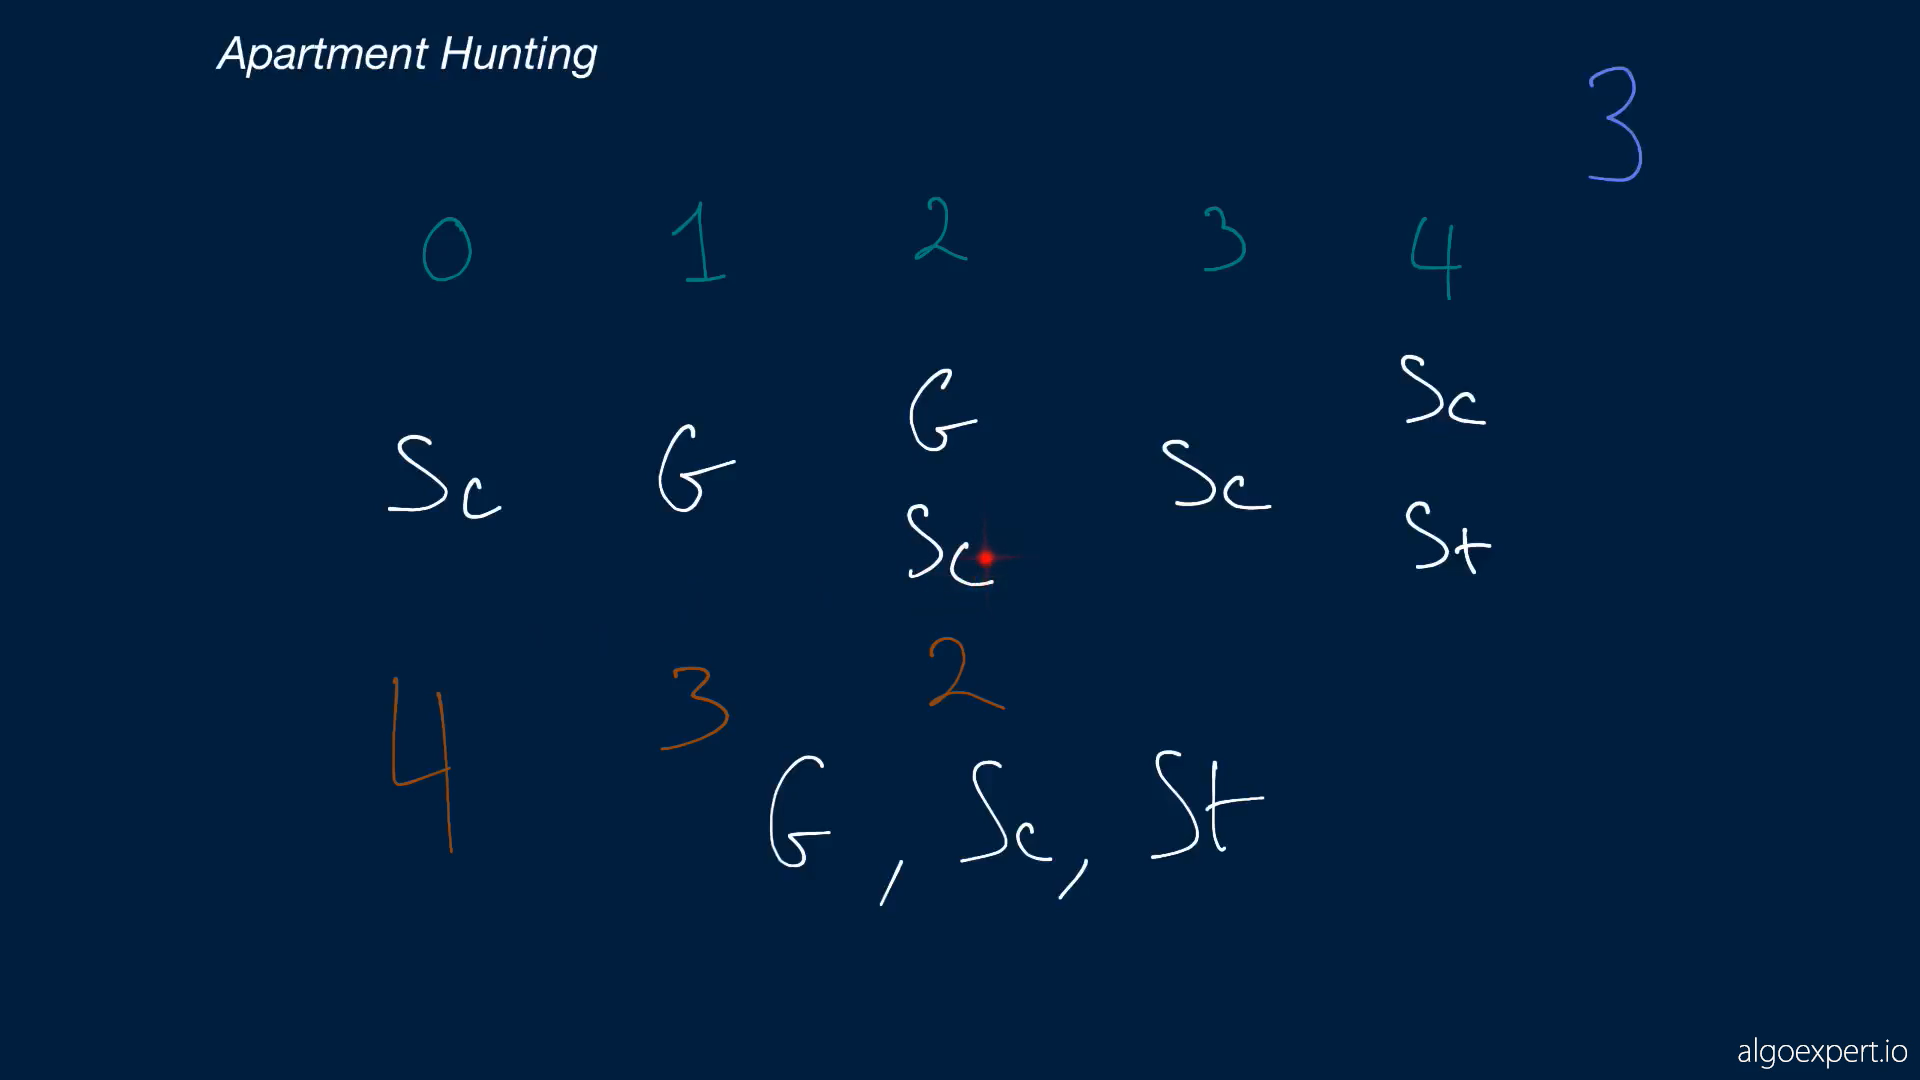 Apartment Hunting
3
0 1 2 3 4
G Sc
Sc G Sc
Sc St
4 3 2
G, Sc, St
algoexpert.io